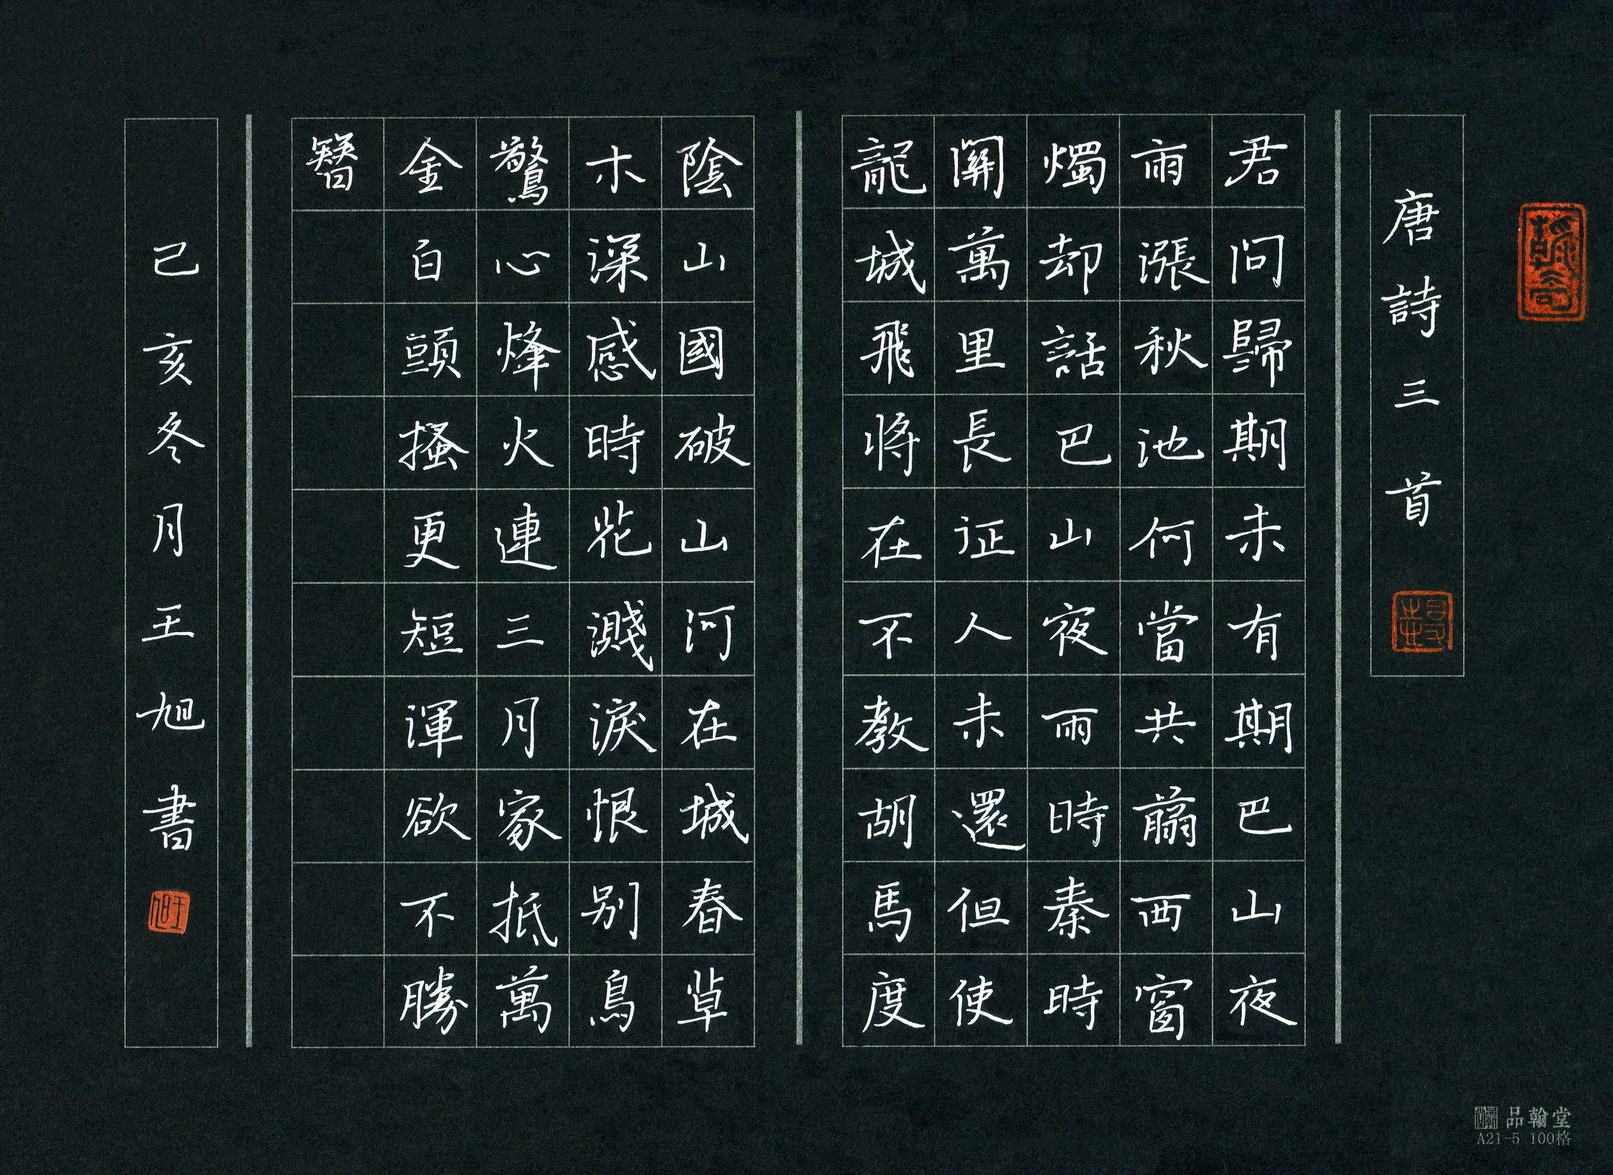 唐詩三首
君問歸期未有期巴山夜
雨漲秋池何當共翦西窗
燭却話巴山夜雨時秦時
關萬里長征人未還但使
龍城飛将在不教胡馬度
陰山國破山河在城春草
木深感時花濺淚恨别鳥
驚心烽火連三月家抵萬
金白頭搔更短渾欲不勝
簪
己亥冬月王旭書
王旭
品翰堂
A21-5 100格